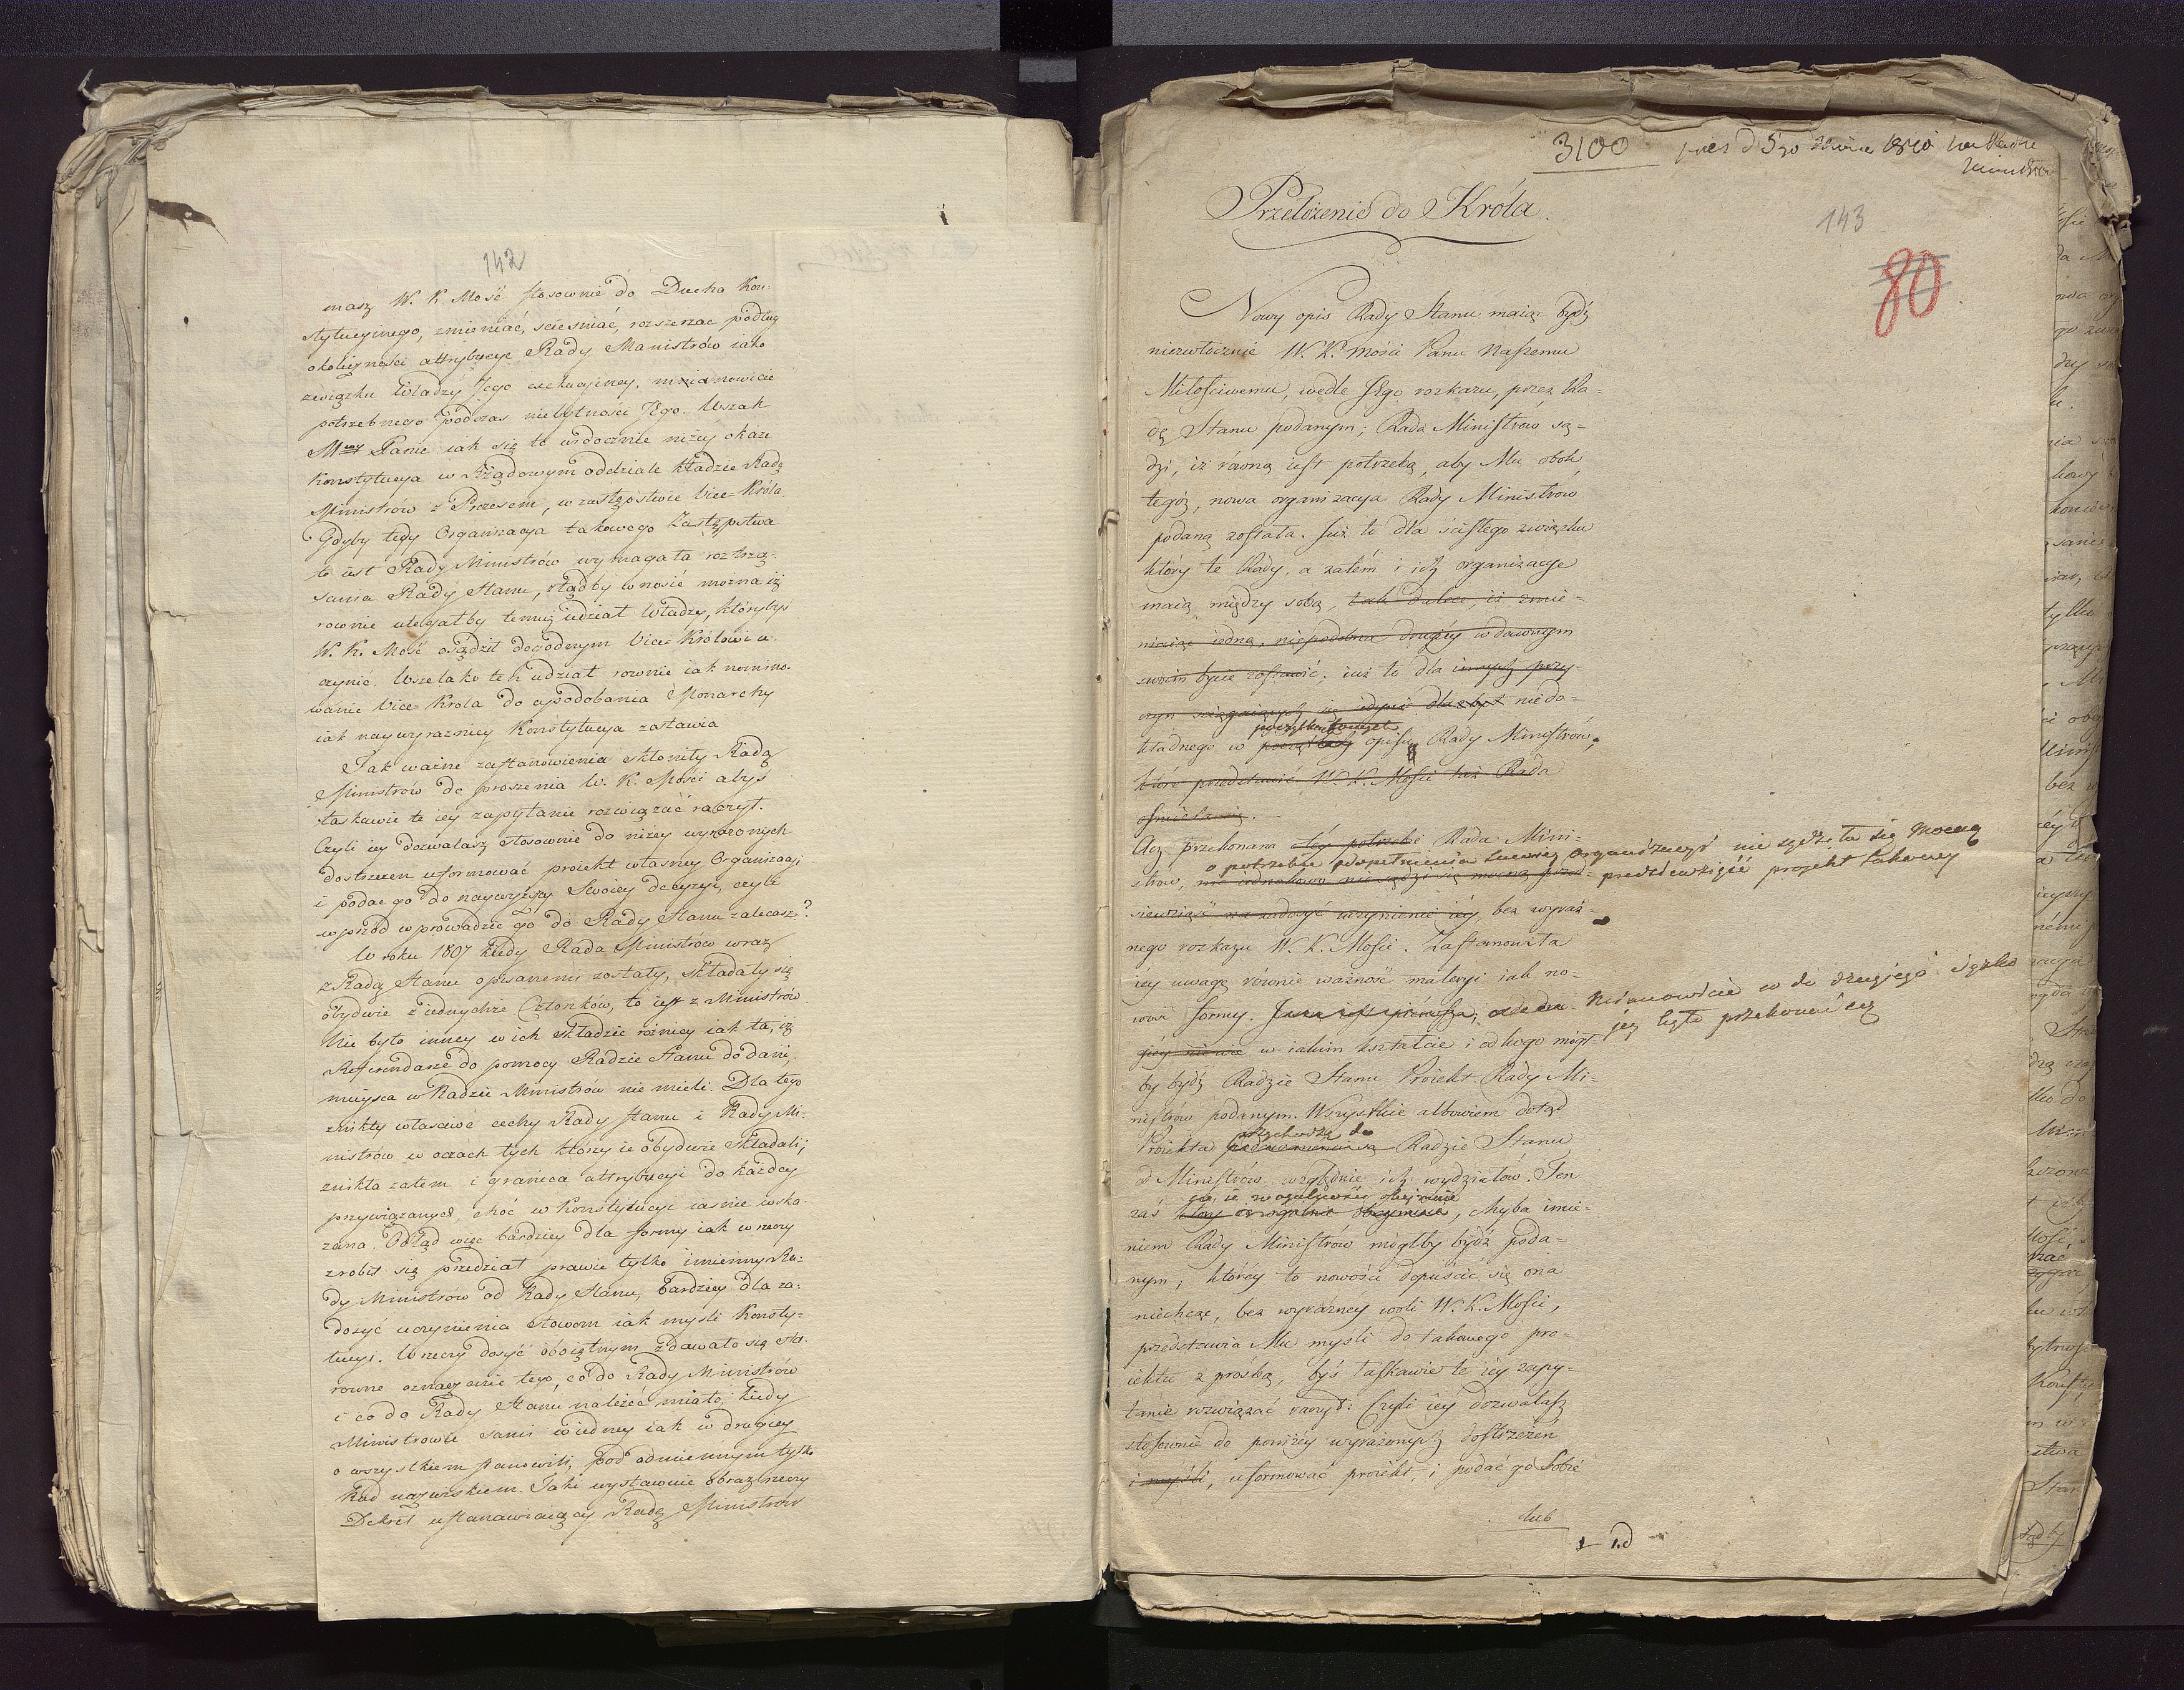 142
masz W. K. Mość stosownie do Ducha Kon-
stytucyinego, zmieniać, ścieśniać, rozszerzac podług
okoliczności attrybucye Rady Ministrów iako
związku Władzy Jego exekucyiney, mianowicie
potrzebnego podczas niebytności JEgo. Wszak
Panie iak się to widocznie niżey okaże
Konstytucya w Rządowym oddziale kładzie Radę
Ministrów z Prezesem, w zastępstwie Vice-Króla.
Gdyby tedy Organizacya takowego Zastępstwa
to iest Rady Ministrów wymagała roztrzą-
sania Rady Stanu, ztądby wnosić można iż
rownie ulegałby temuż udział Władzy, któryby
W. K. Mość osądził dogodnym Vice-Królowi u-
czynić. Wszelako ten udział rownie iak nomino-
wanie Vice-Krola do upodobania Monarchy
iak naywyrazniey Konstytucya zastawia
Tak ważne zastanowienia skłoniły Radę
Ministrow do proszenia W. K. Mości abyś
łaskawie te iey zapytanie rozwiązać raczył.
Czyli iey dozwalasz stosownie do niżey wyrażonych
dostrzeżen uformować proiekt własney Organizacyi
i podac go do naywyższey Swoiey decyzyi, czyli
wprzód wprowadzić go do Rady Stanu zalecasz?
W roku 1807 kiedy Rada Ministrów wraz
z Radą Stanu opisanemi zostały, składały się
obydwie z iednychże Członków, to iest z Ministrów.
Nie było inney w ich składzie różnicy iak ta, iż
Referendarze do pomocy Radzie Stanu dodani,
mieysca w Radzie Ministrów nie mieli. Dla tego
znikły własciwe cechy Rady Stanu i Rady Mi-
nistrów w oczach tych którzy ie obydwie składali;
znikła zatem i granica attrybucyi do każdey
przywiązanych, choć w Konstytucyi iasnie wska-
zana. Odtąd więc bardziey dla formy iak w rzeczy
zrobił się przedział prawie tylko imienny Ra-
dy Ministrow od Rady Stanu, bardziey dla za-
dosyć uczynienia słowom iak myśli Konsty-
tucyi. W rzeczy dosyć oboiętnym zdawało się sta-
rowne oznaczenie tego, co do Rady Ministrów
i co do Rady Stanu należeć miało, kiedy
Ministrowie sami w iedney iak w drugiey
o wszystkiem stanowili, pod odmiennym tylko
Rad nazwiskiem. Taki wystawuie obraz rzeczy
Dekret ustanawiaiący Radę Ministrów
3100
Przełożenie do Króla.
143
80
Nowy opis Rady Stanu maiąc bydź
niezwłocznie W. K. Mości Panu Naszemu
Miłościwemu, wedle JEgo rozkazu, przez Ra-
dę Stanu podanym; Rada Ministrów są-
dzi, iż równą iest potrzebą, aby Mu obok
tegóż, nowa organizacya Rady Ministrów
podaną została. Już to dla ścisłego związku
który te Rady, a zatém i ich organizacye
maią między sobą, tak dalece, iż zmie-
niaiąc iedną, niepodobna drugiéy w dawnym
swoim bycie zostawić; iuż to dla innych przy-
czyn ściągaiących się iedynie dla zbyt niedo-
początkowych
kładnego w początkach opisu Rady Ministrów,
które przedstawić W. K. Mości taż Rada
ośmiela się.
Acz przekonana tey potrzebie Rada Mini-
o potrzebie dopełnienia swoiey Organizacyi nie sądziła się mocną
strów, nie iednakowo nie sądzi się mocną przed- przedsiewziąść projekt takowey
siewziąść na zadosyć uczynienie iéy bez wyraź-
nego rozkazu W. K. Mości. Zastanowiła
iéy uwagę równie ważność materyi iak no-
wość formy. Jasna iest pierwsza; Mianowicie co do drugiego ięzła
w iakim kształcie i od kogo mógł- jey było przekonać się
by bydź Radzie Stanu Proiekt Rady Mi-
nistrów podanym. Wszystkie albowiem dotąd
przychodzą do
Proiekta podawanemi są Radzie Stanu
od Ministrów względnie ich wydziałów. Ten
zaś który ie ogólnie obeymuie, chyba imie-
niem Rady Ministrów mógłby bydź poda-
nym; któréy to nowości dopuścić się ona
niechcąc, bez wyraźney woli W. K. Mości,
przedstawia Mu myśli do takowego pro-
iektu z prośbą, byś łaskawie te iéy zapy-
tanie rozwiązać raczył: Czyli iéy dozwalasz
stosownie do poniżey wyrażonych dostrzeżeń
i myśli, uformować proiekt, i podać go Sobie
lub